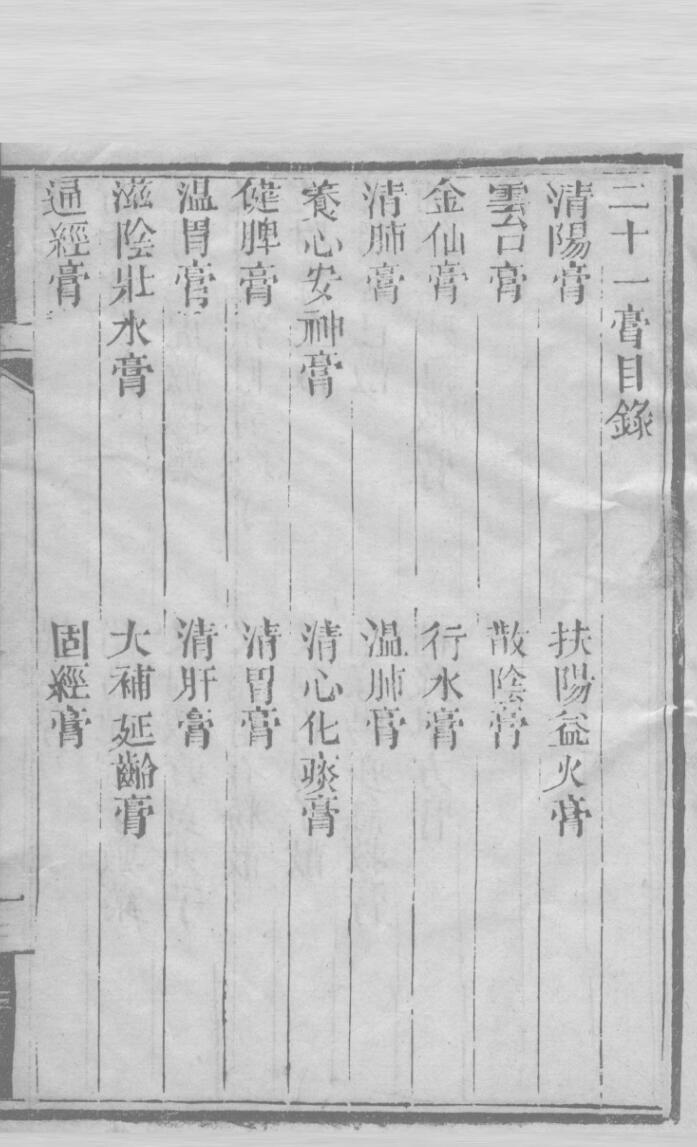 二十一膏目錄
清陽膏　扶陽益火膏
雲台膏　散陰膏
金仙膏　行水膏
清肺膏　温肺膏
養心安神膏　清心化痰膏
健脾膏　清胃膏
温胃膏　清肝膏
滋陰壯水膏　大補延齡膏
通經膏　固經膏